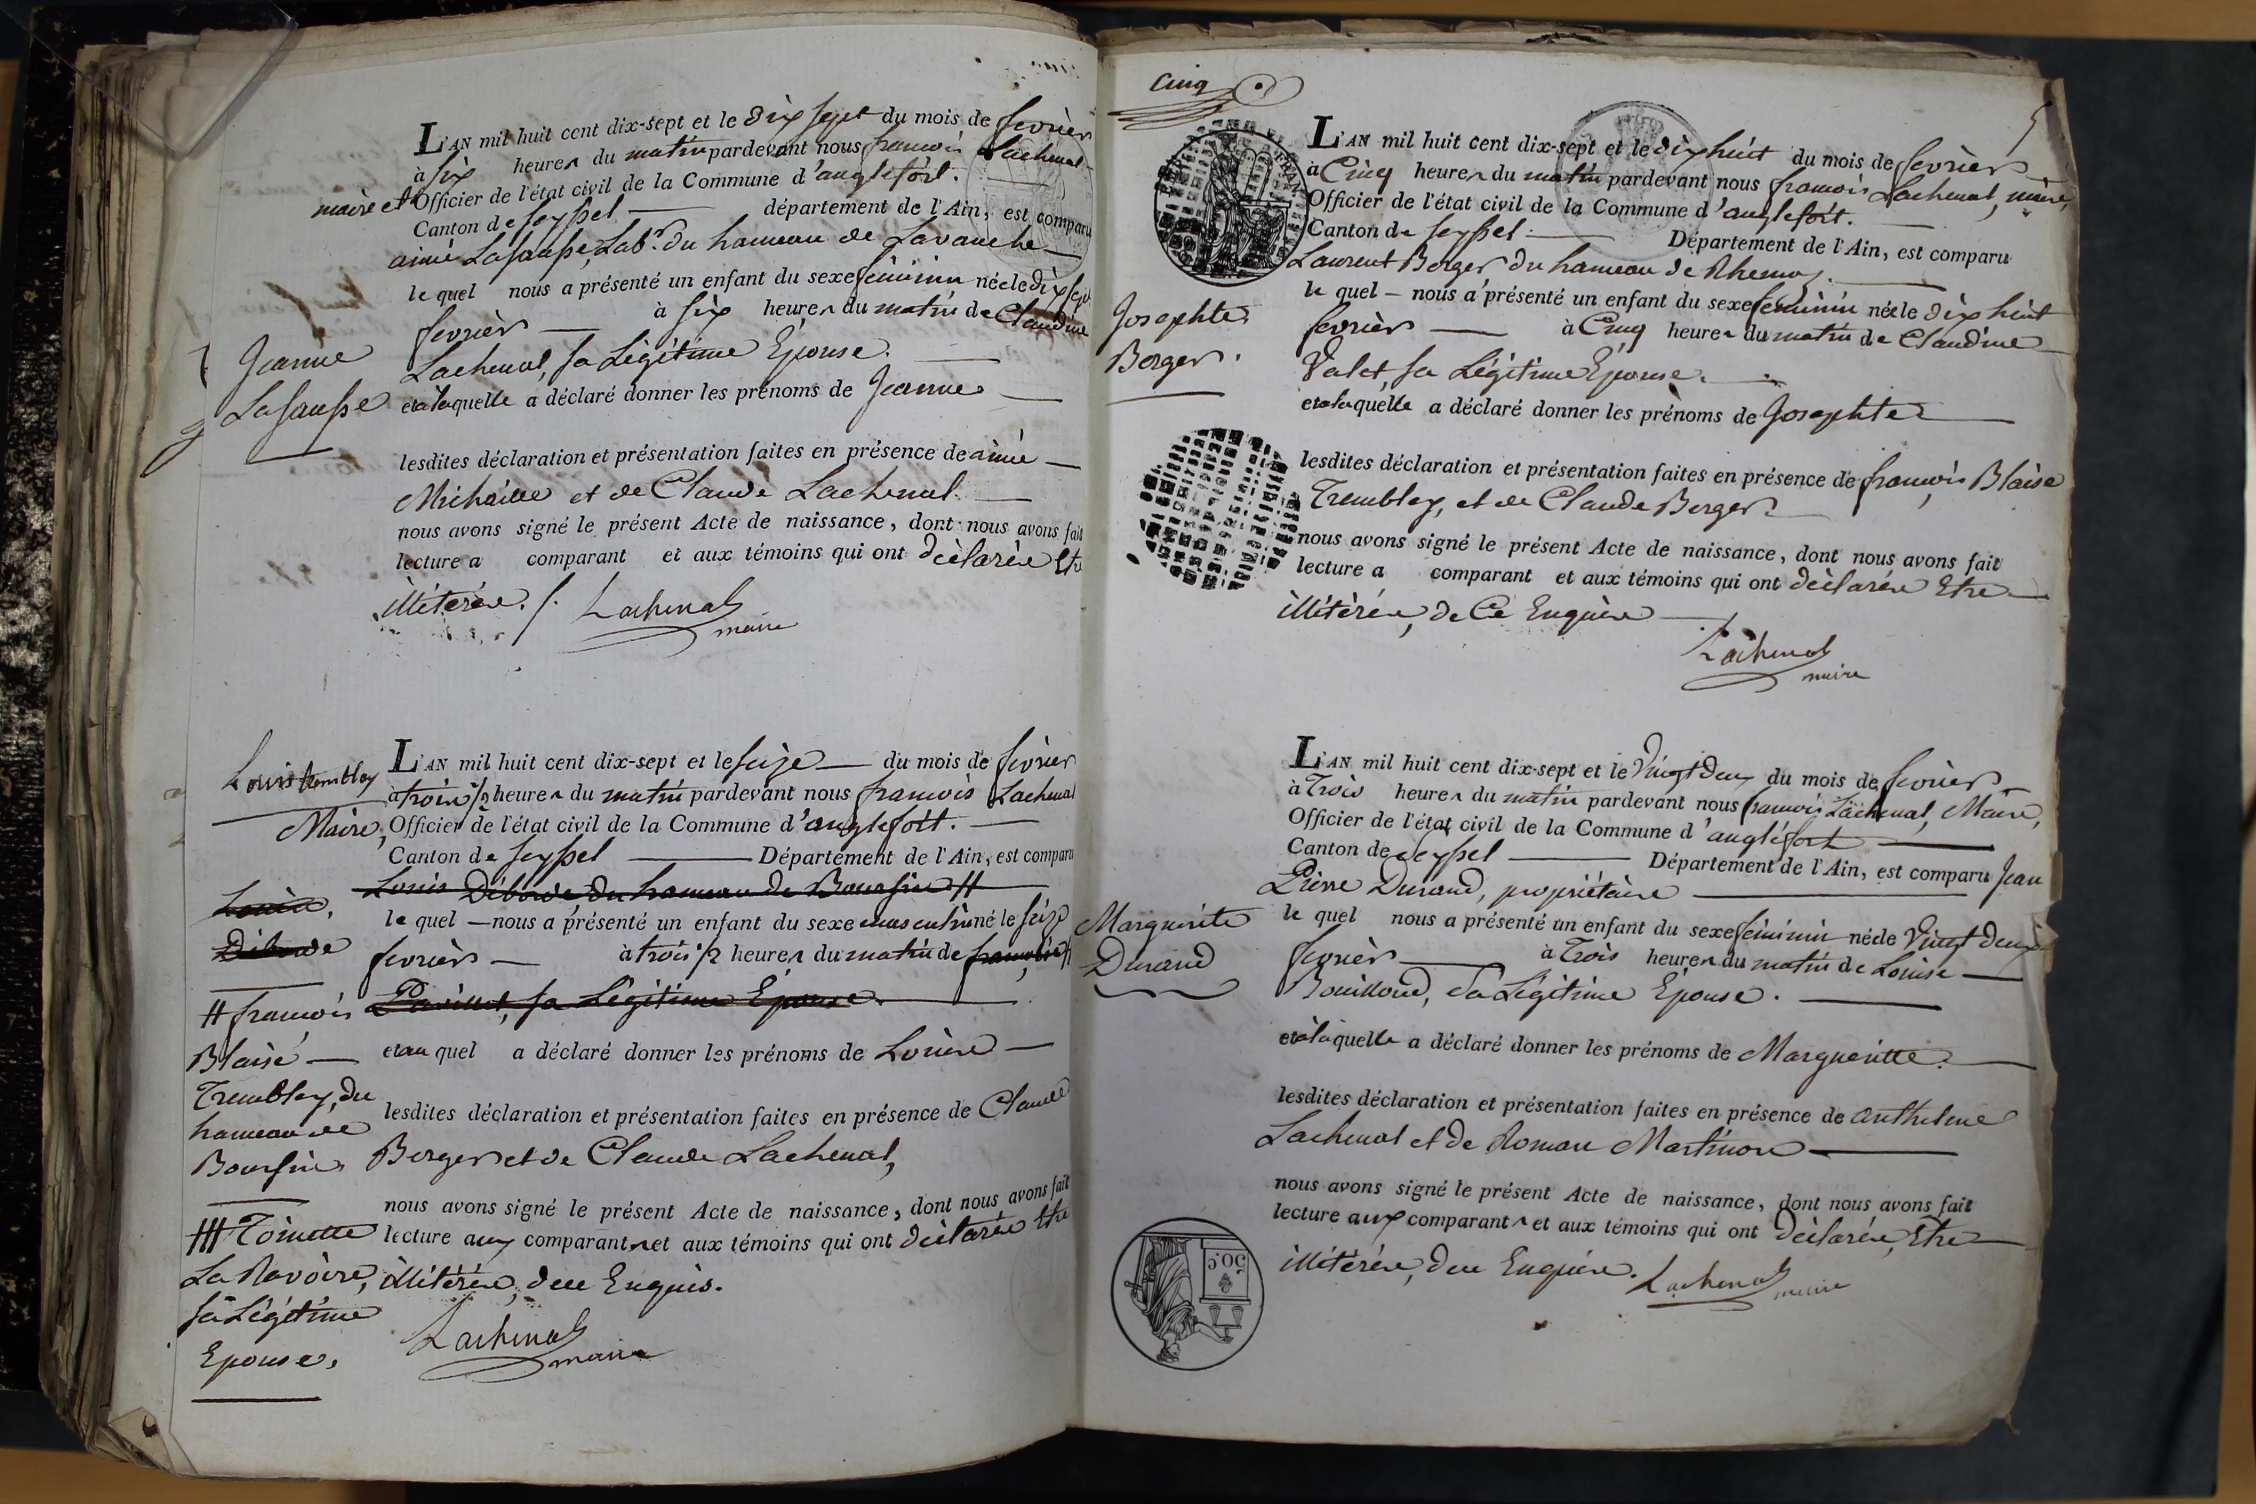 L'AN mil huit cent dix-sept et le dix sept du mois de fevrier
à six heures du matin pardevant nous françois Lachenal
maire et Officier de l'état civil de la Commune d'anglefort.
Canton de seyssel département de l'Ain, est comparu
aimé Lasausse, Labr. du hameau de Lavanche
le quel nous a présenté un enfant du sexe féminin née le dix sept
fevrier à six heures du matin de Claudine
Lachenal, sa Légitime Epouse.
et à laquelle a déclaré donner les prénoms de Jeanne
Jeanne
Lasausse
lesdites déclaration et présentation faites en présence de aimé
Michaille et de Claude Lachenal.
nous avons signé le présent Acte de naissance, dont nous avons fait
lecture a comparant et aux témoins qui ont déclarés Etre
illitérés. /. Lachenal
maire
Louis tremblay
L'AN mil huit cent dix-sept et le seize du mois de fevrier
à trois 1/2 heures du matin pardevant nous françois Lachenal
Maire, Officier de l'état civil de la Commune d'anglefort.
Canton de seyssel Département de l'Ain, est comparu
Louis Déborde du hameau de Boursin #
Louise,
Déborde
le quel nous a présenté un enfant du sexe masculin né le seize
fevrier à trois 1/2 heures du matin de françoise
sa Légitime Epouse.
et au quel a déclaré donner les prénoms de
# françois
Blaise
Tremblay, du
hameau de
Boursin
lesdites déclaration et présentation faites en présence de Claude
Berger et de Claude Lachenal,
nous avons signé le présent Acte de naissance, dont nous avons fait
lecture aux comparants et aux témoins qui ont déclarés Etre
illitérés, de ce Enquis.
# Toinette
La Ravoire,
sa Légitime
Epouse.
Lachenal
maire
Cinq
5
L'AN mil huit cent dix-sept et le dix huit du mois de fevrier
à Cinq heures du matin pardevant nous françois Lachenal, maire,
Officier de l'état civil de la Commune d'anglefort.
Canton de seyssel Département de l'Ain, est comparu
Laurent Berger du hameau de Rhemoz
le quel nous a présenté un enfant du sexe féminin née le dix huit
fevrier à Cinq heures du matin de Claudine
Valet, sa Légitime Epouse.
et à laquelle a déclaré donner les prénoms de Josephte
Josephte
Berger.
lesdites déclaration et présentation faites en présence de françois Blaise
Tremblay, et de Claude Berger
nous avons signé le présent Acte de naissance, dont nous avons fait
lecture a comparant et aux témoins qui ont déclarés Etre
illitérés, de Ce Enquis
Lachenal
maire
L'AN mil huit cent dix-sept et le Vingt deux du mois de fevrier
à Trois heures du matin pardevant nous françois Lachenal, Maire,
Officier de l'état civil de la Commune d'anglefort
Canton de seyssel Département de l'Ain, est comparu Jean
Pierre Durand, propriétaire
le quel nous a présenté un enfant du sexe féminin née le Vingt deux
fevrier à Trois heures du matin de Louise
Bouilloud, sa Légitime Epouse.
et à laquelle a déclaré donner les prénoms de Margueritte.
Marguerite
Durand
lesdites déclaration et présentation faites en présence de anthelme
Lachenal et de Roman Martinon
nous avons signé le présent Acte de naissance, dont nous avons fait
lecture aux comparants et aux témoins qui ont déclarés, Etre
illitérés, de ce Enquis. Lachenal
maire
50C